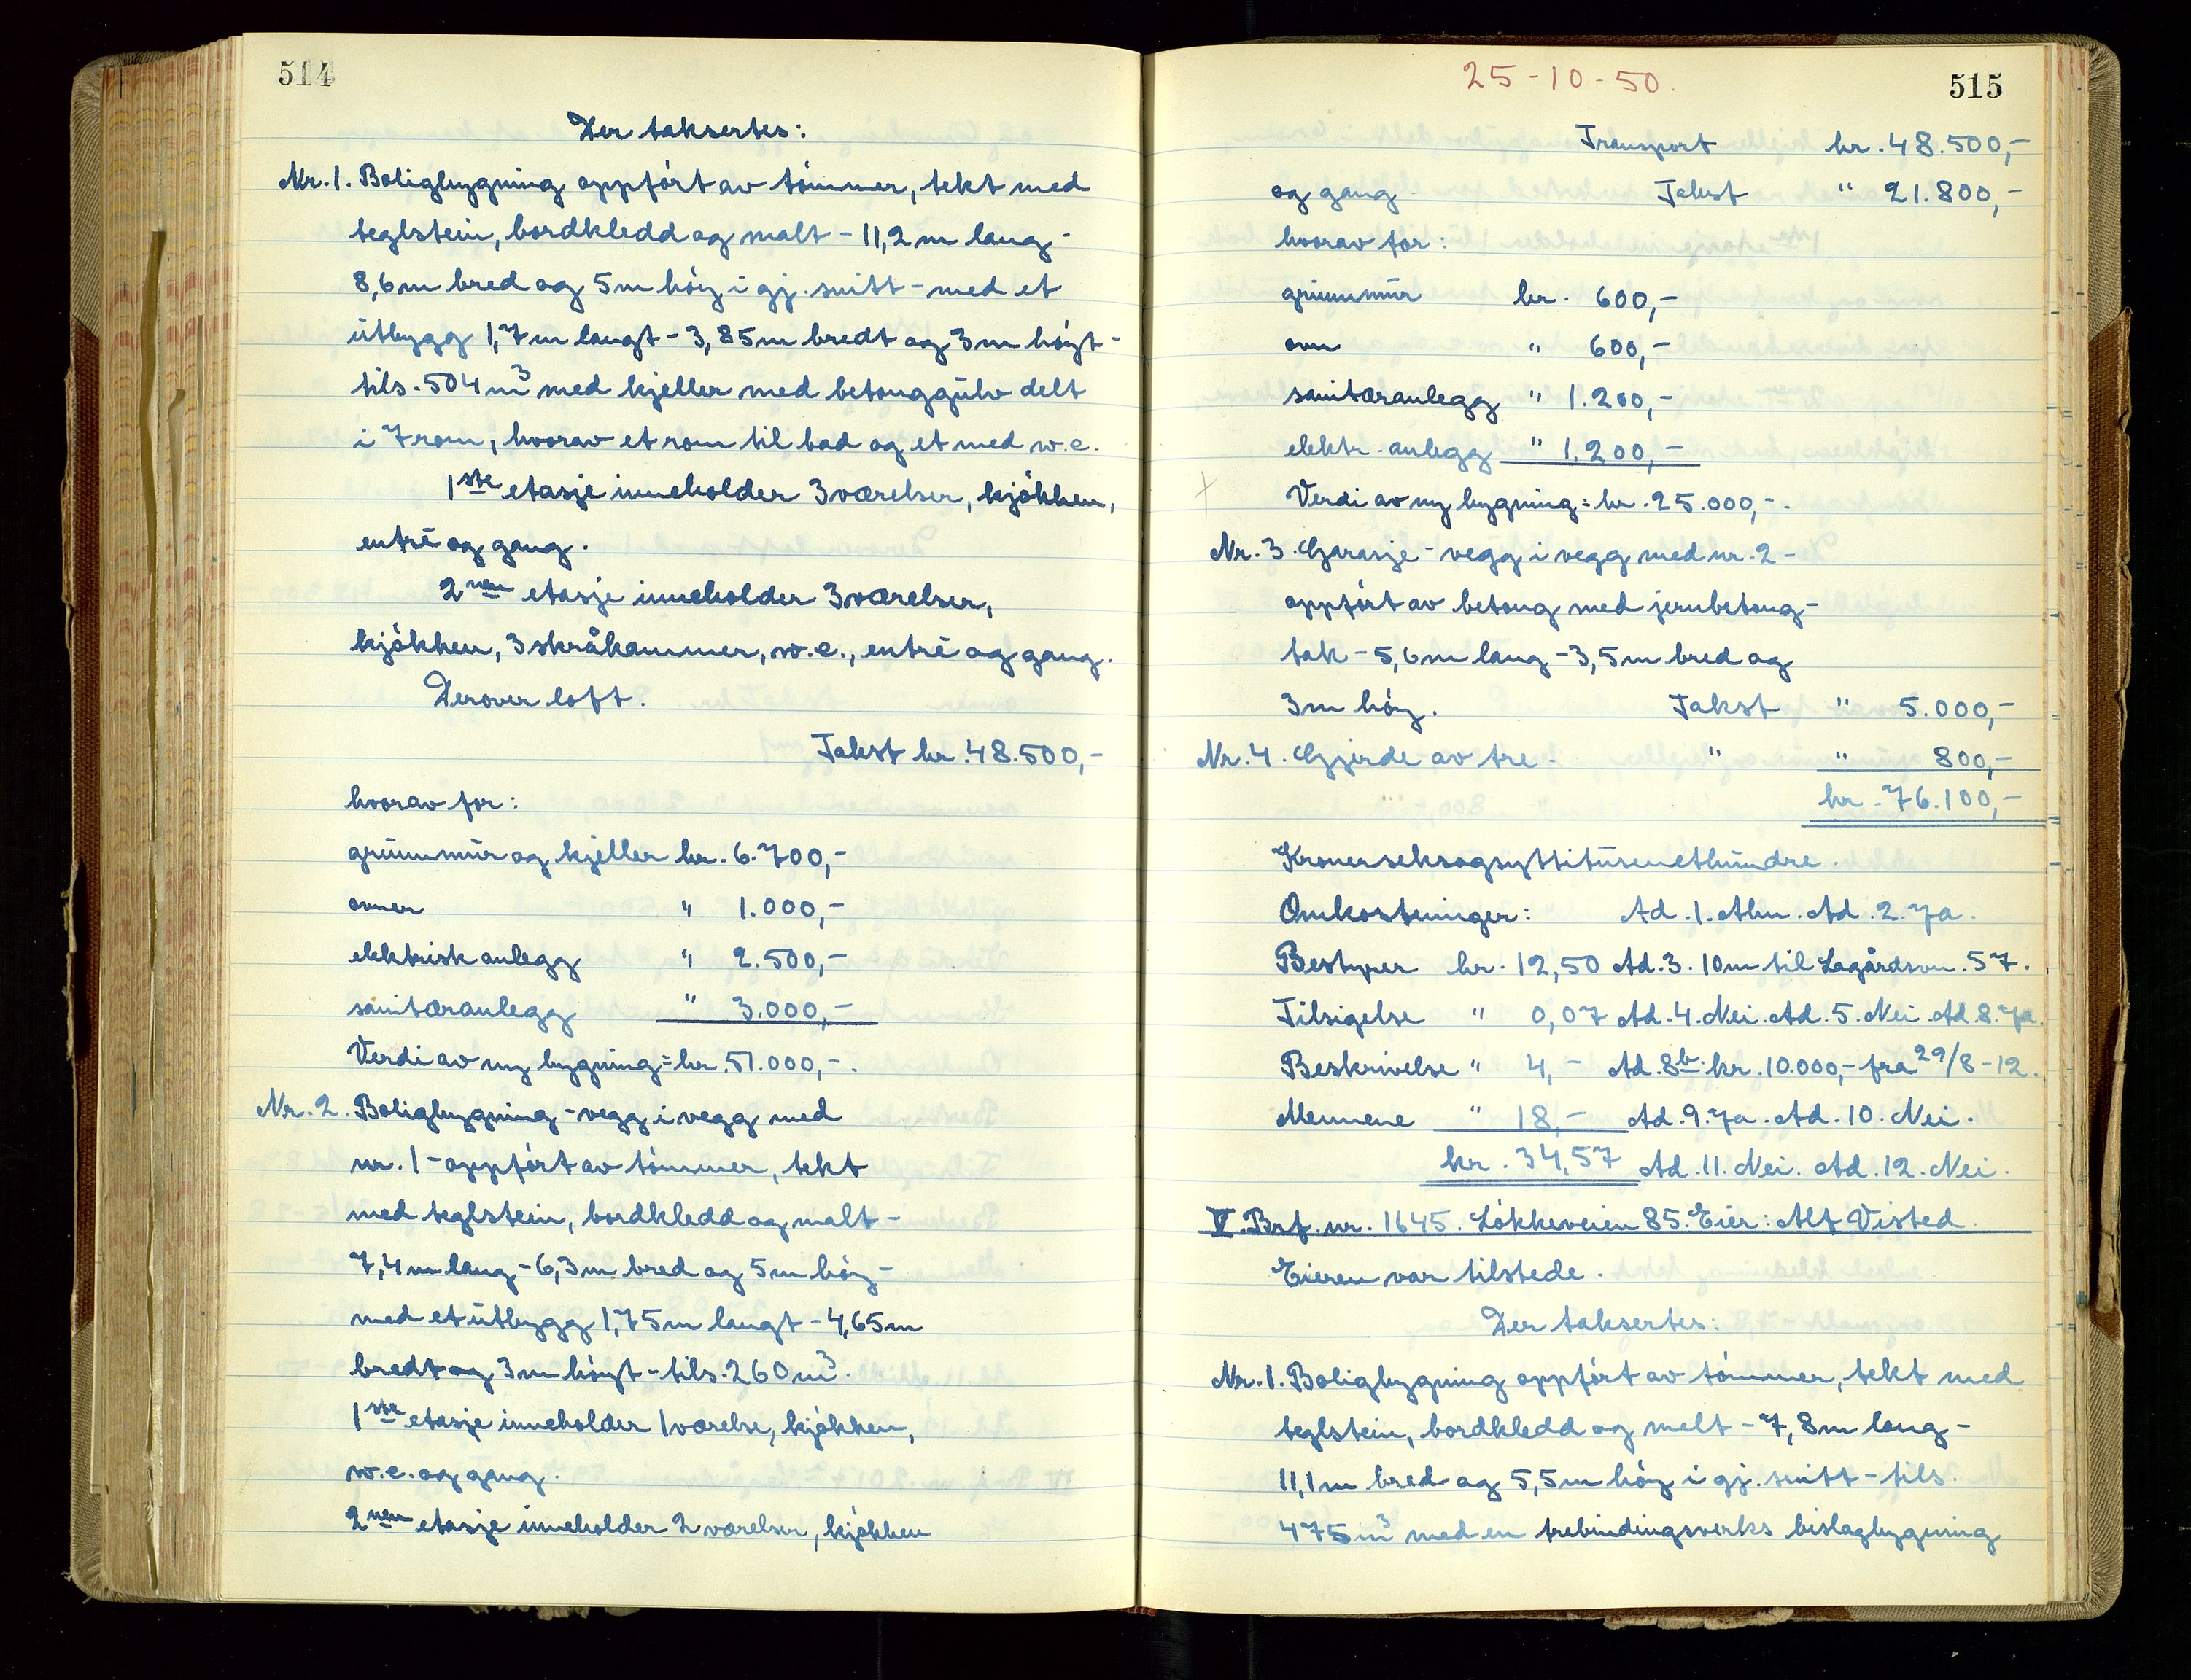 514
Der taksertes:
Nr. 1. Boligbygning oppført av tømmer, tekt med
teglstein, bordkledd og malt - 11,2 m lang -
8,6 m bred og 5 m høy i gj. snitt - med et
utbygg 1,7 m langt - 3,85 m bredt og 3 m høyt -
tils. 504 m³ med kjeller med betonggulv delt
i 7 rom, hvorav et rom til bad og et med w.c.
1ste etasje inneholder 3 værelser, kjøkken,
entré og gang.
2nen etasje inneholder 3 værelser,
kjøkken, 3 skråkammer, w.c., entré og gang.
Derover loft.
Takst kr. 48.500,-
hvorav for:
grunnmur og kjeller kr. 6.700,-
ovner " 1.000,-
elektrisk anlegg " 2.500,-
sanitæranlegg " 3.000,-
Verdi av ny bygning = kr. 51.000,-.
Nr. 2. Boligbygning - vegg i vegg med
nr. 1 - oppført av tømmer, tekt
med teglstein, bordkledd og malt -
7,4 m lang - 6,3 m bred og 5 m høy -
med et utbygg 1,75 m langt - 4,65 m
bredt og 3 m høyt - tils. 260 m³.
1ste etasje inneholder 1 værelse, kjøkken,
w.c. og gang.
2nen etasje inneholder 2 værelser, kjøkken
25-10-50.
515
Transport kr. 48.500,-
og gang. Takst " 21.800,-
hvorav for:
grunnmur kr. 600,-
ovn " 600,-
sanitæranlegg " 1.200,-
elektr. anlegg " 1.200,-
Verdi av ny bygning = kr. 25.000,-.
Nr. 3. Garasje - vegg i vegg med nr. 2 -
oppført av betong med jernbetong-
tak - 5,6 m lang - 3,5 m bred og
3 m høy. Takst " 5.000,-
Nr. 4. Gjerde av tre. " " 800,-
kr. 76.100,-
Kronersekssogsyttitusenethundre.
Omkostninger: Ad. 1. Alm. Ad. 2. Ja.
Bestyrer kr. 12,50 Ad. 3. 10 m til Lagårdsvn. 57.
Tilsigelse " 0,07 Ad. 4. Nei. Ad. 5. Nei. Ad. 8. Ja.
Beskrivelse " 4,- Ad. 8b. kr. 10.000,- fra 29/8-12.
Mennene " 18,- Ad. 9. Ja. Ad. 10. Nei.
kr. 34,57 Ad. 11. Nei. Ad. 12. Nei.
V. Brf. nr. 1645. Løkkeveien 85. Eier: Alf Visted.
Eieren var tilstede.
Der taksertes:
Nr. 1. Boligbygning oppført av tømmer, tekt med
teglstein, bordkledd og malt - 7,8 m lang -
11,1 m bred og 5,5 m høy i gj. snitt - tils.
475 m³ med en trebindingsverks bislagbygning